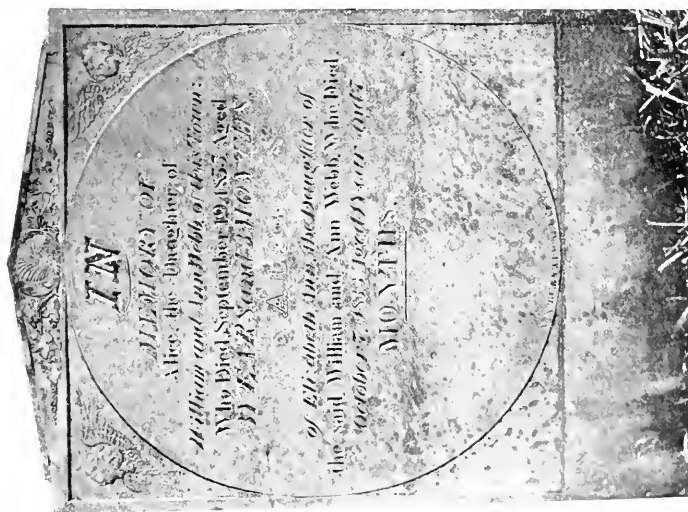 IN
MEMORY OF
Alice, the Daughter of
William and Ann Webb of this Town;
Who Died September 19, 1837, Aged
YEARS and MONTHS,
of Elizabeth Ann, the Daughter of
the said William and Ann Webb, Who Died,
October 7, year and
MONTHS.